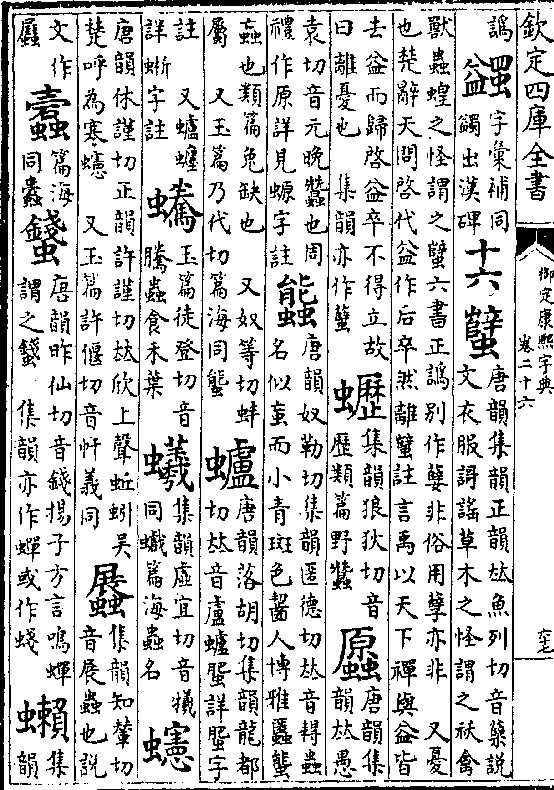 欽定四庫全書
御定康熙字典
卷二十六
譌
字彙補同
蠲出漢碑
十六
蠥
唐韻集韻正韻𠀤魚列切音孽說
文衣服謌謠草木之怪謂之祅禽
獸蟲蝗之怪謂之蠥六書正譌別作孼非俗用孽亦非 又憂
也楚辭天問啓代益作后卒然離蠥註言禹以天下禪與益皆
去益而歸啓益卒不得立故
曰離憂也 集韻亦作蠥
𧔝
集韻狼狄切音
歷類篇野蠶
唐韻集
韻𠀤愚
袁切音元晚蠶也周
禮作原詳見螈字註
唐韻奴勒切集韻匿德切𠀤音螚蟲
名似䖟而小青斑色齧人博雅
蝱也類篇兔缺也 又奴等切蚌
屬 又玉篇乃代切篇海同螚
蠦
唐韻落胡切集韻龍都
切𠀤音盧蠦蜰詳蜰字
註 又蠦
詳蜥字註
玉篇徒登切音
騰蟲食禾葉
集韻虛宜切音犧
同蠘篇海蟲名
唐韻休謹切正韻許謹切𠀤欣上聲蚯蚓吳
楚呼為寒 又玉篇許偃切音忓義同
集韻知輦切
音展蟲也說
文作
篇海
同蠹
唐韻昨仙切音錢揚子方言鳴蟬
謂之 集韻亦作蟬或作
集
韻